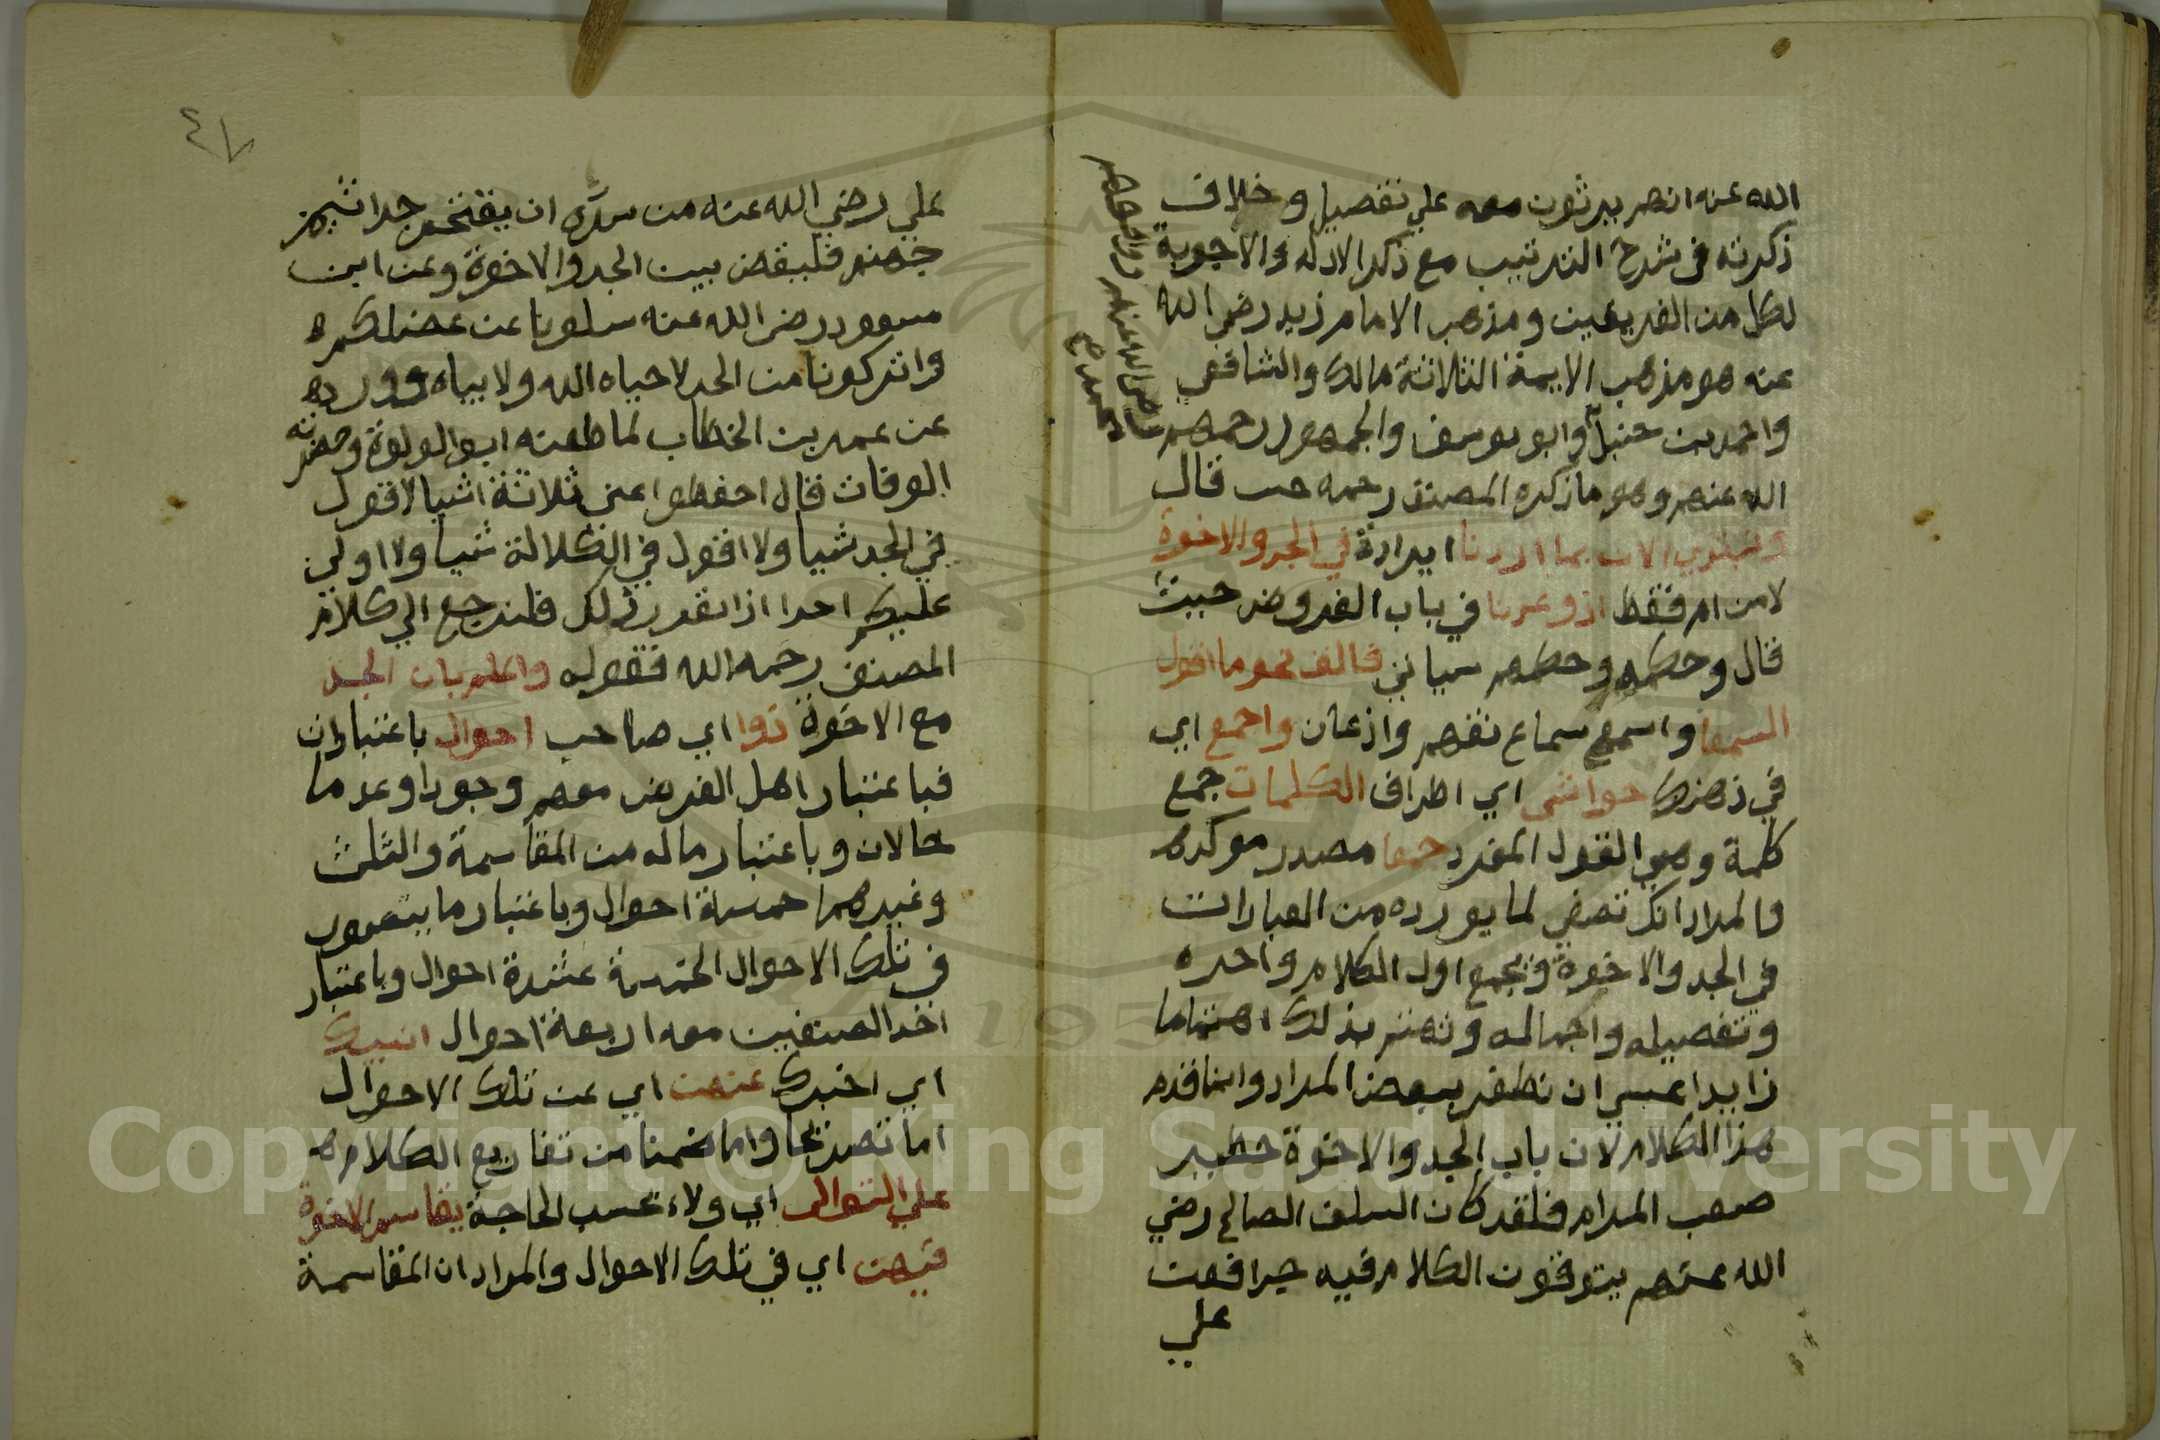 الله عنه انهم يرثون معه علي تفصيل وخلاف
ذكرته في شرح الترتيب مع ذكر الادله والاجوبة
لكل من الفريقين ومذهب الامام زيد رضي الله
عنه هو مذهب الايمة الثلاثة مالك والشافعي
واحمد بن حنبل وابو يوسف والجمهور رحمهم
الله عنهم وهو ما ذكره المصنف رحمه حيث قال
ونبتدي الان بما اردنا ايراده في الجد والاخوة
لا من ام فقط اذ وعدنا في باب الفروض حيث
قال وحكمه وحكمهم سياتي فالق نحو ما اقول
السمعا واسمع سماع تفهم واذعان واجمع اي
في ذهنك حواشي اي اطراف الكلمات جمع
كلمة وهو القول المفرد جمعا مصدر موكده
والمراد انك تصغي لما يورده من العبارات
في الجد والاخوة وتجمع اول الكلام واخره
وتفصيله واجماله وتهتم بذلك اهتماما
زايدا عسي ان تظفر ببعض المراد وانما قدم
هذا الكلام لان باب الجد والاخوة خطير
صعب المرام فلقد كان السلف الصالح رضي
الله عنهم يتوقون الكلام فيه جدا فعن
علي
٤٧
علي رضي الله عنه من سره ان يقتحم جراثيم
جهنم فليقض بين الجد والاخوة وعن ابن
مسعود رضي الله عنه سلونا عن عضلكم
واتركونا من الجد لا حياه الله ولا بياه وورد
عن عمر بن الخطاب لما طعنه ابو الولوة وحضرته
الوفاة قال احفظوا عني ثلاثة اشيا لا اقول
في الجد شيا ولا اقول في الكلالة شيا ولا اولي
عليكم احدا اذا تقرر ذلك فلنرجع الي كلام
المصنف رحمه الله فقوله واعلم بان الجد
مع الاخوة ذوا اي صاحب احوال باعتبارات
فباعتبار اهل الفرض معهم وجودا وعدما
حالان وباعتبار ماله من المقاسمة والثلث
وغيرهما خمسة احوال وباعتبار ما يتصور
في تلك الاحوال الخمسة عشرة احوال وباعتبار
اخذ الصنفين معه اربعة احوال انبيك
اي اخبرك عنهن اي عن تلك الاحوال
اما تصريحا واما ضمنا من تفاريع الكلام
علي التوالي اي ولاء بحسب الحاجة يقاسم الاخوة
فيهن اي في تلك الاحوال والمراد ان المقاسمة
Copyright © King Saud University
195